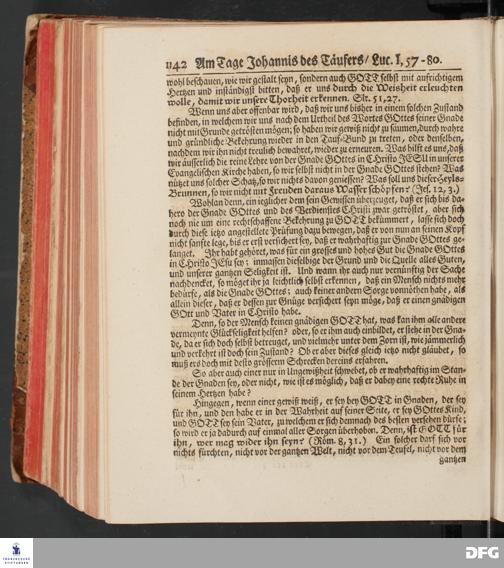 1142 Am Tage Johannis des Täufers/ Luc. I, 57-80.
wohl beschauen, wie wir gestalt seyn, sondern auch GOTT selbst mit aufrichtigem
Hertzen und inständigst bitten, daß er uns durch die Weisheit erleuchten
wolle, damit wir unsere Thorheit erkennen. Sir. 51, 27.
Wenn uns aber offenbar wird, daß wir uns bisher in einem solchen Zustand
befinden, in welchem wir uns nach dem Urtheil des Wortes GOttes seiner Gnade
nicht mit Grunde getrösten mögen; so haben wir gewiß nicht zu säumen, durch wahre
und gründliche Bekehrung wieder in den Tauf-Bund zu treten, oder denselben,
nachdem wir ihn nicht treulich bewahret, wieder zu erneuren. Was hilft es uns, daß
wir äusserlich die reine Lehre von der Gnade GOttes in CHristo JESU in unserer
Evangelischen Kirche haben, so wir selbst nicht in der Gnade GOttes stehen? Was
nützet uns solcher Schatz, so wir nichts davon geniessen? Was soll uns dieser Heyls-
Brunnen, so wir nicht mit Freuden daraus Wasser schöpfen? (Jes. 12, 3.)
Wohlan denn, ein ieglicher dem sein Gewissen überzeuget, daß er sich bis da-
hero der Gnade GOttes und des Verdienstes CHristi zwar getröstet, aber sich
noch nie um eine rechtschaffene Bekehrung zu GOTT bekümmert, lasse sich doch
durch diese ietzo angestellete Prüfung dazu bewegen, daß er von nun an seinen Kopf
nicht sanfte lege, bis er erst versichert sey, daß er wahrhaftig zur Gnade GOttes ge-
langet. Ihr habt gehöret, was für ein grosses und hohes Gut die Gnade GOttes
in CHristo JEsu sey; immassen dieselbige der Grund und die Quelle alles Guten,
und unserer gantzen Seligkeit ist. Und wann ihr auch nur vernünftig der Sache
nachdencket, so möget ihr ja leichtlich selbst erkennen, daß ein Mensch nichts mehr
bedürfe, als die Gnade GOttes; auch keiner andern Sorge vonnöthen habe, als
allein dieser, daß er dessen zur Gnüge versichert seyn möge, daß er einen gnädigen
GOtt und Vater in CHristo habe.
Denn, so der Mensch keinen gnädigen GOTT hat, was kan ihm alle andere
vermeynte Glückseligkeit helfen? oder, so er ihm auch einbildet, er stehe in der Gna-
de, da er sich doch selbst betreuget, und vielmehr unter dem Zorn ist, wie jämmerlich
und verkehrt ist doch sein Zustand? Ob er aber dieses gleich ietzo nicht gläubet, so
muß ers doch mit desto grösserm Schrecken dereins erfahren.
So aber auch einer nur in Ungewißheit schwebet, ob er wahrhaftig im Stan-
de der Gnaden sey, oder nicht, wie ist es möglich, daß er dabey eine rechte Ruhe in
seinem Hertzen habe?
Hingegen, wenn einer gewiß weiß, er sey bey GOTT in Gnaden, der sey
für ihn, und den habe er in der Wahrheit auf seiner Seite, er sey GOttes Kind,
und GOTT sey sein Vater, zu welchem er sich demnach des besten versehen dürfe;
so wird er ja dadurch auf einmal aller Sorgen überhoben. Denn, ist GOTT für
ihn, wer mag wider ihn seyn? (Röm. 8, 31.) Ein solcher darf sich vor
nichts fürchten, nicht vor der gantzen Welt, nicht vor dem Teufel, nicht vor dem
gantzen
FRANCKESCHE
STIFTUNGEN
DFG